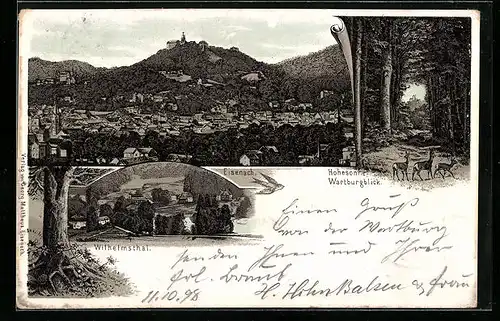 Eisenach.
Hohesonne
Wartburgblick.
Wilhelmsthal.
Einen Gruß
von der Wartburg
senden Ihnen und Ihrer
frl. Braut
H. u Frau
11.10.98
Verlag von Georg Matthaus Eisenach.